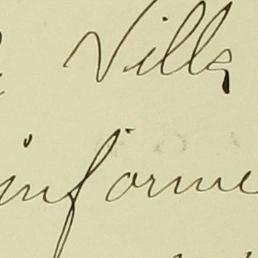 Ville
informe